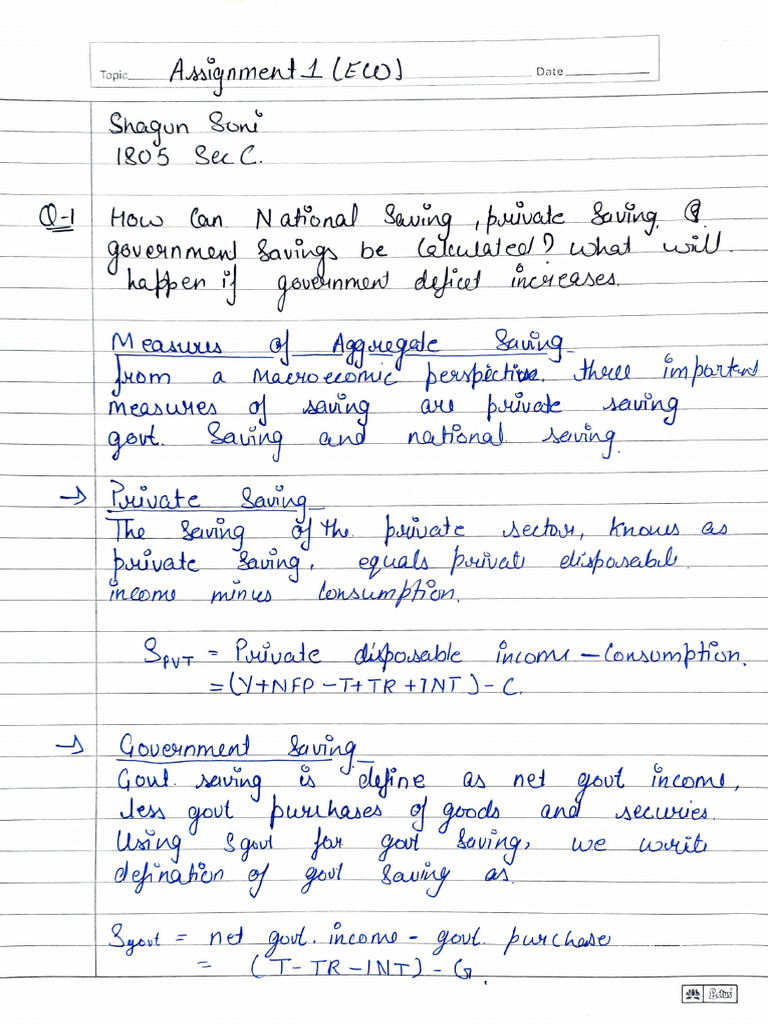 Topic Assignment 1 (ECO) Date
Shagun Soni
1805 Sec C.
Q-1 How Can National Saving, private Saving &
government Savings be Calculated? What will
happen if government deficet increases.
Measures of Aggregate Saving
from a Macroecomic perspective. three important
measures of saving are private saving
govt. Saving and national saving.
→ Private Saving
The Saving of the private sector, knows as
private Saving, equals private disposable
income minus Consumption.
SPVT = Private disposable income – Consumption.
= (Y+NFP–T+TR+INT) – C.
→ Government Saving
Govt. saving is define as net govt income,
less govt purchases of goods and securies.
Using Sgovt for govt Saving, we write
defination of govt Saving as.
Sgovt = net govt. income – govt. purchase
= (T–TR–INT) – G.
Lotus